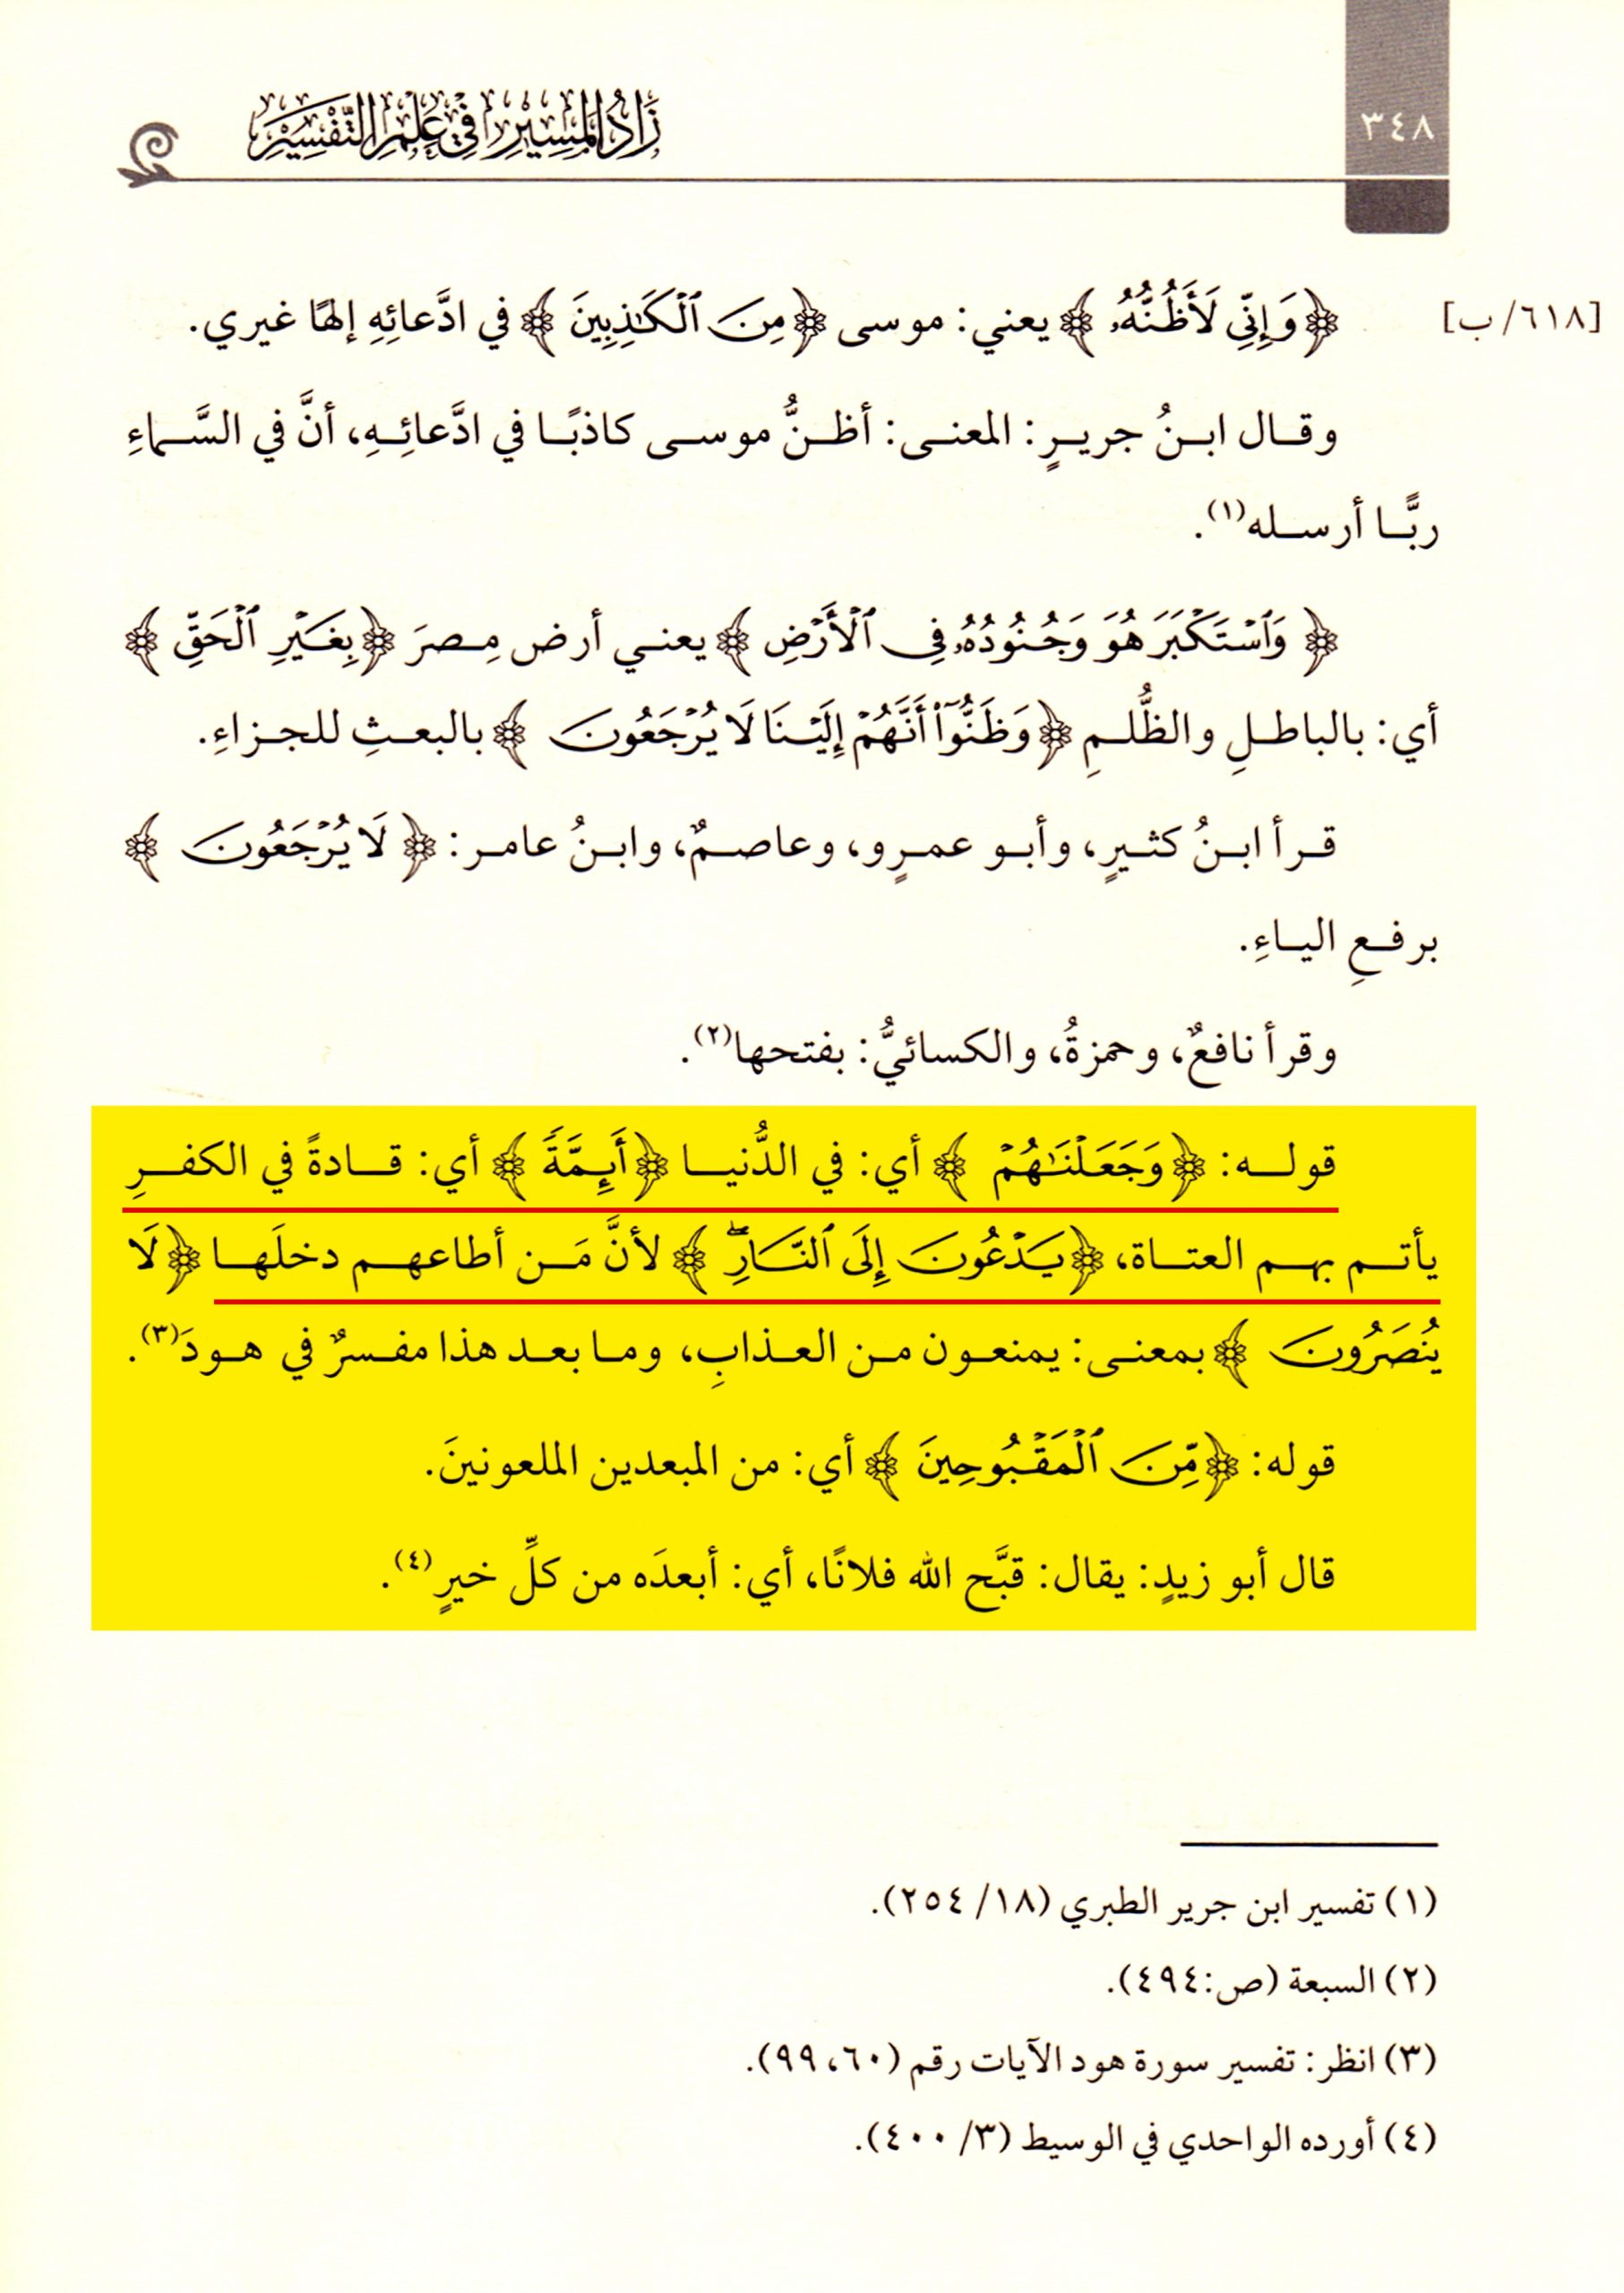 ٣٤٨
زَادُ المَسِيْرِ فِي عِلْمِ التَّفْسِيْرِ
[٦١٨/ب]
﴿وَإِنِّي لَأَظُنُّهُۥ﴾ يعني: موسى ﴿مِنَ ٱلْكَـٰذِبِينَ﴾ في ادَّعائِهِ إلهًا غيري.
وقال ابنُ جريرٍ: المعنى: أظنُّ موسى كاذبًا في ادَّعائِهِ، أنَّ في السَّماءِ
ربًّا أرسله(١).
﴿وَٱسْتَكْبَرَ هُوَ وَجُنُودُهُۥ فِى ٱلْأَرْضِ﴾ يعني أرض مِصرَ ﴿بِغَيْرِ ٱلْحَقِّ﴾
أي: بالباطلِ والظُّلمِ ﴿وَظَنُّوٓا۟ أَنَّهُمْ إِلَيْنَا لَا يُرْجَعُونَ﴾ بالبعثِ للجزاءِ.
قرأ ابنُ كثيرٍ، وأبو عمرٍو، وعاصمٌ، وابنُ عامر: ﴿لَا يُرْجَعُونَ﴾
برفعِ الياءِ.
وقرأ نافعٌ، وحمزةُ، والكسائيُّ: بفتحها(٢).
قوله: ﴿وَجَعَلْنَـٰهُمْ﴾ أي: في الدُّنيا ﴿أَئِمَّةً﴾ أي: قادةً في الكفرِ
يأتم بهم العتاة، ﴿يَدْعُونَ إِلَى ٱلنَّارِۖ﴾ لأنَّ مَن أطاعهم دخلَها ﴿لَا
يُنصَرُونَ﴾ بمعنى: يمنعون من العذابِ، وما بعد هذا مفسرٌ في هودَ(٣).
قوله: ﴿مِّنَ ٱلْمَقْبُوحِينَ﴾ أي: من المبعدين الملعونينَ.
قال أبو زيدٍ: يقال: قبَّح الله فلانًا، أي: أبعدَه من كلِّ خيرٍ(٤).
(١) تفسير ابن جرير الطبري (١٨/ ٢٥٤).
(٢) السبعة (ص:٤٩٤).
(٣) انظر: تفسير سورة هود الآيات رقم (٦٠، ٩٩).
(٤) أورده الواحدي في الوسيط (٣/ ٤٠٠).